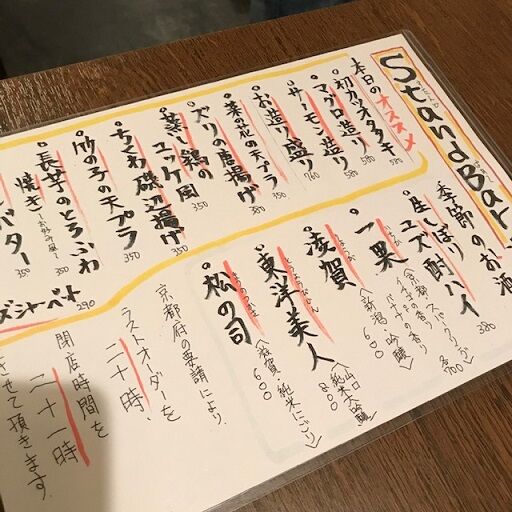 Stand Bar
本日のオススメ
初カツオタタキ 580
マグロ造り 580
サーモン造り 580
お造り盛り 760
菜の花の天プラ 350
ズリの唐揚げ 350
蒸し鶏のユッケ風
ちくわ磯辺揚げ 350
竹の子の天プラ 350
長芋のとろふわ焼き 350
バター
ズシャーベット 290
季節のお酒
生しぼりユズ酎ハイ 380
一果 700
〈新潟・吟醸〉 600
凌駕
東洋美人 〈山口 純米大吟醸〉 800
松の司 〈滋賀・純米にごり〉 600
京都府の要請により、
ラストオーダーを
二十時、
閉店時間を
二十一時
させて頂きます。